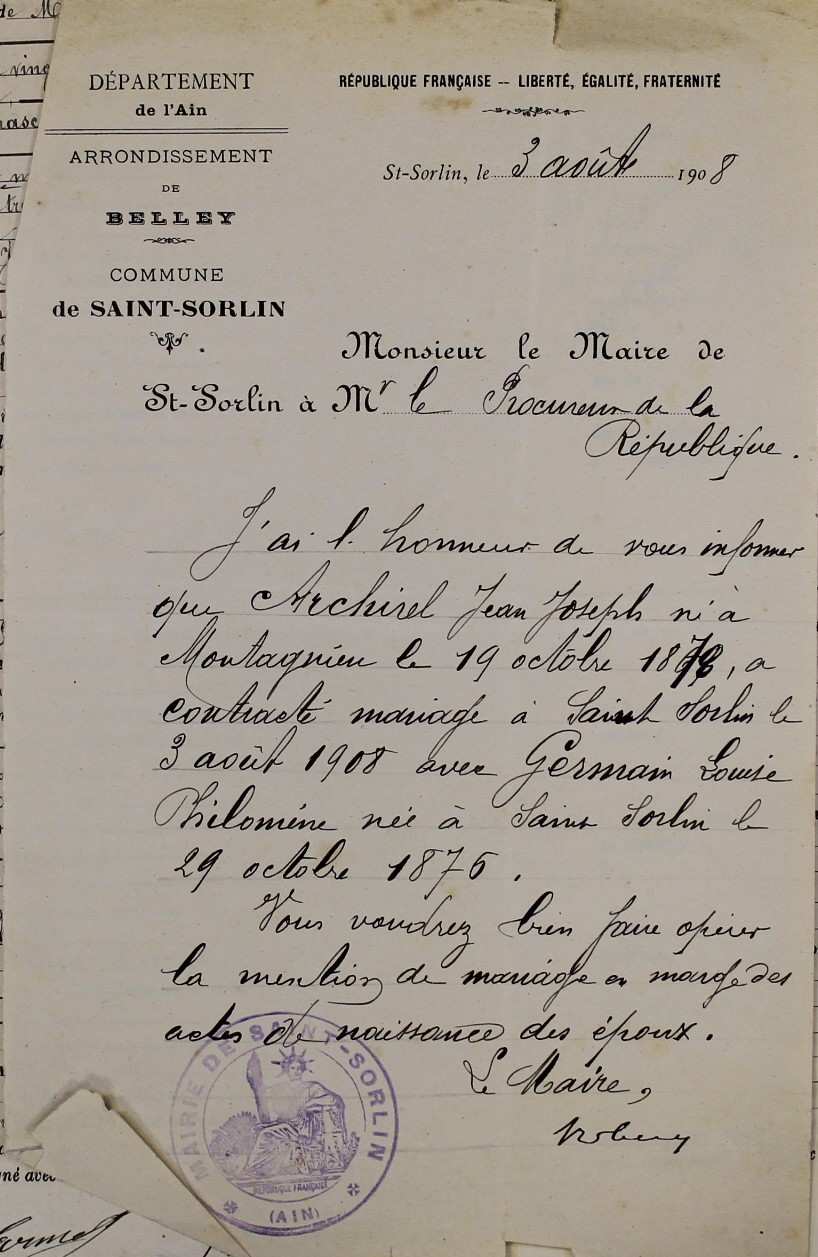 DÉPARTEMENT
de l'Ain
ARRONDISSEMENT
DE
BELLEY
COMMUNE
de SAINT-SORLIN
RÉPUBLIQUE FRANÇAISE -- LIBERTÉ, ÉGALITÉ, FRATERNITÉ
St-Sorlin, le 3 août 1908
Monsieur le Maire de
St-Sorlin à Mr le Procureur de la
République.
J'ai l'honneur de vous informer
que Archirel Jean Joseph né à
Montagnieu le 19 octobre, a
contracté mariage à Saint Sorlin le
3 août 1908 avec Germain Louise
Philomène née à Saint Sorlin le
29 octobre 1876.
Vous voudrez bien faire opérer
la mention de mariage en marge des
actes de naissance des époux.
Le Maire,
MAIRIE DE SAINT-SORLIN
RÉPUBLIQUE FRANÇAISE
(AIN)